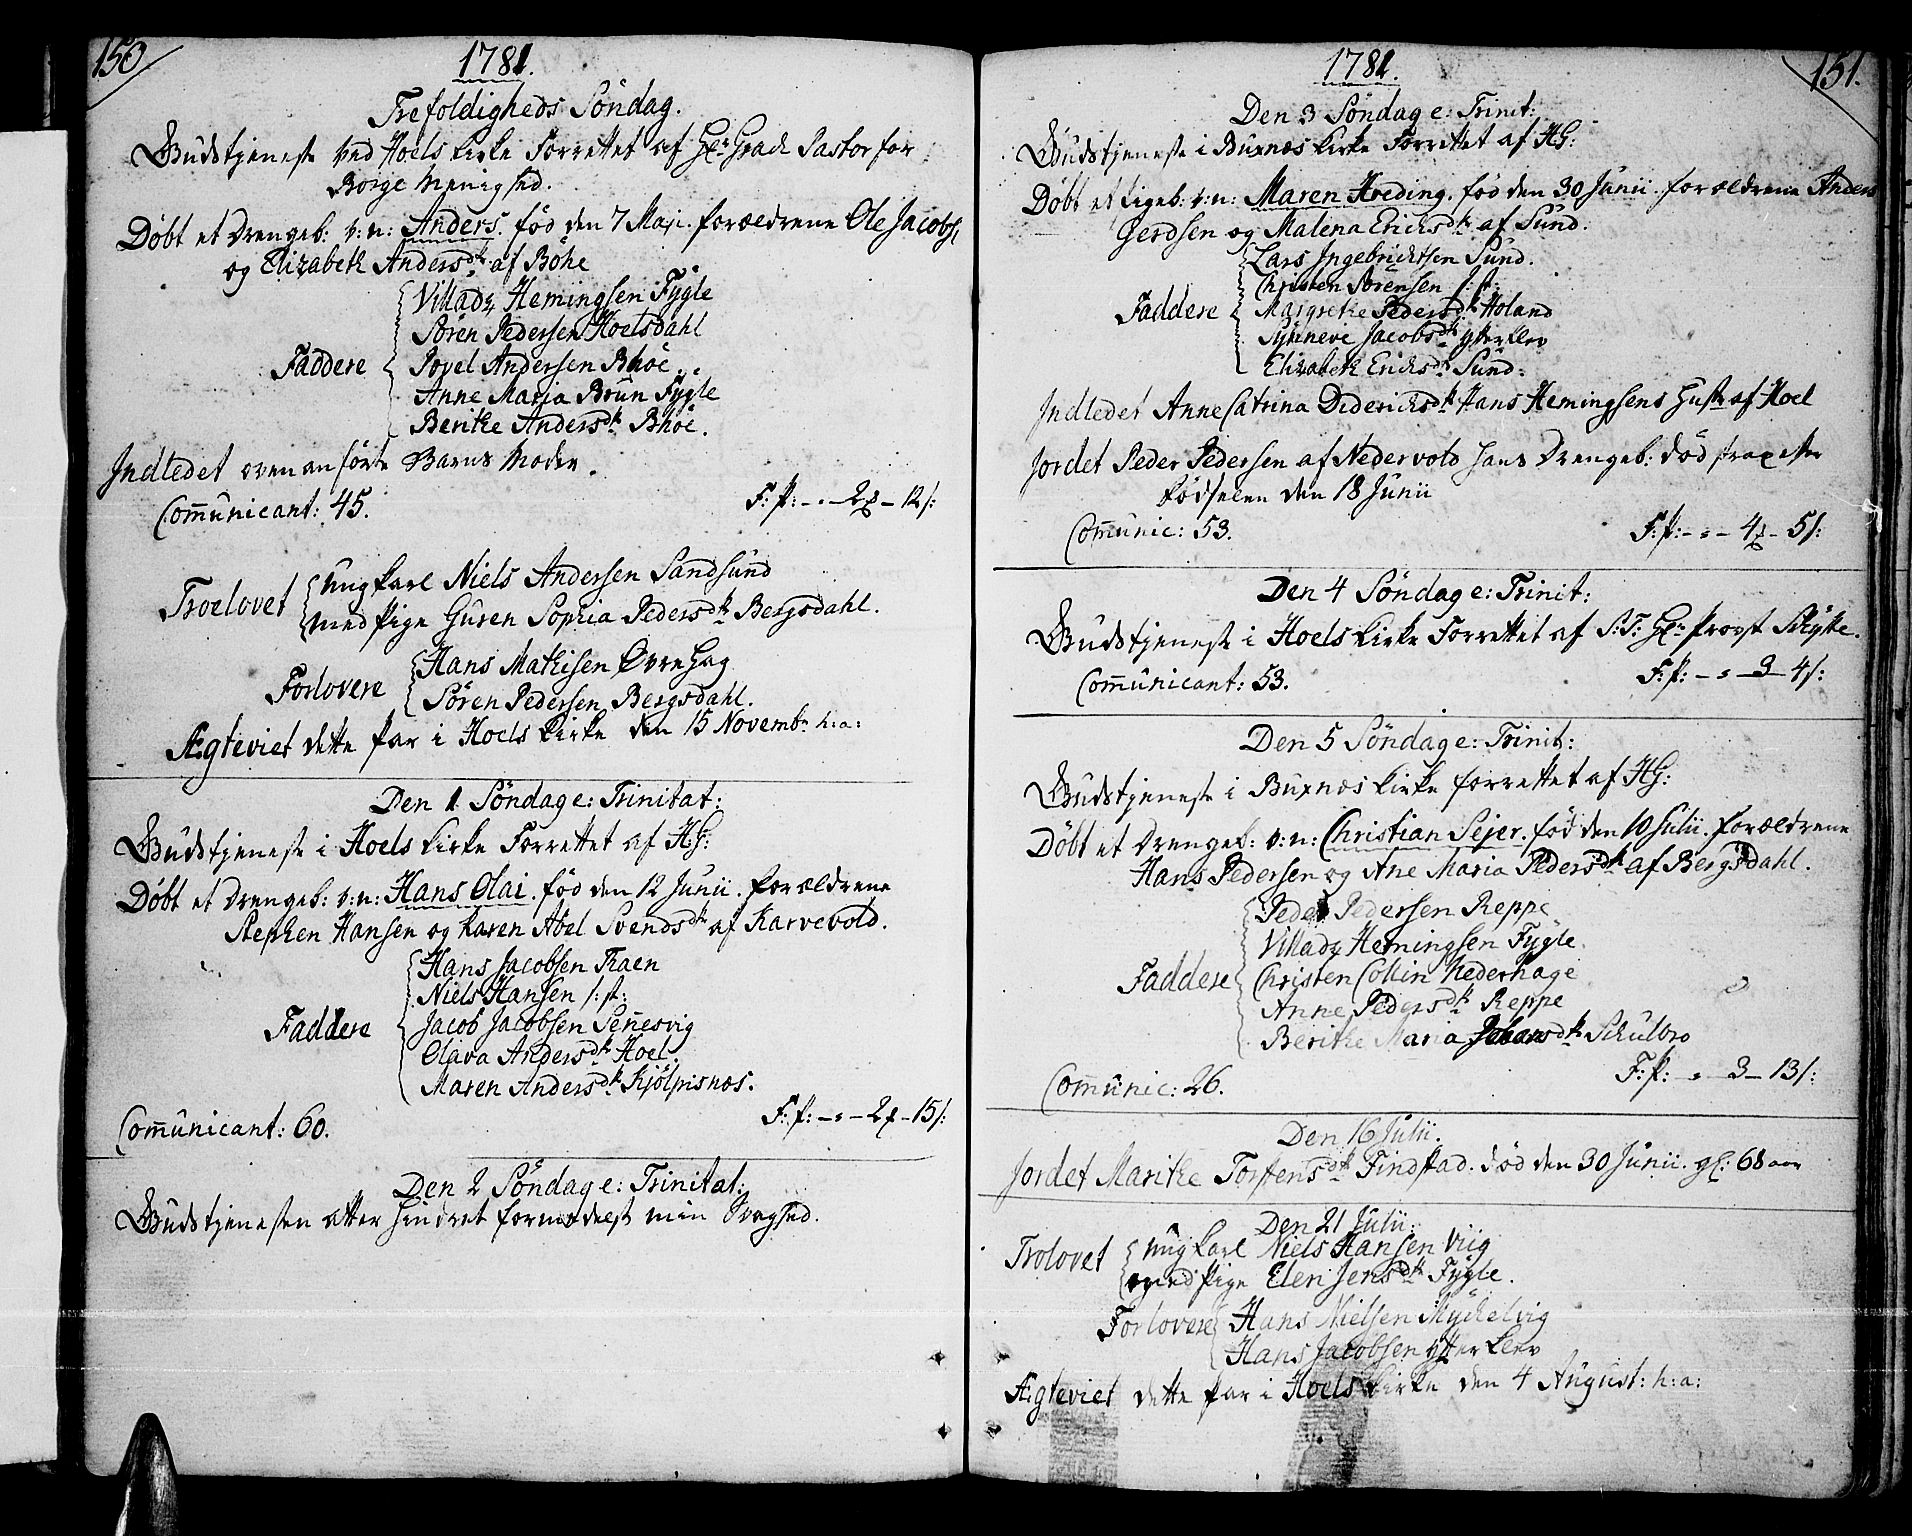 150
1781.
Trefoldigheds Söndag.
Gudstjeneste ved Hoels Kirke Forrettet af Hr: Grach Pastor for
Borge Menighed.
Döbt et Drengeb: v:n: Anders. föd den 7 Maji. forældrene Ole Jacobs:
og Elizabeth Andersdtr af Böhe
Villadz Hemingsen Fygle
Sören Pedersen Hoelsdahl
Faddere Povel Andersen Bhöe
Anne Maria Brun Fygle
Berithe Andersdtr Bhöe.
Indledet ovenanförte Barns Moder.
Communicant: 45. F:p: - " - 2 - 12 s:
Troelovet Ungkarl Niels Andersen Sandsund
med Pige Guren Sophia Pedersdtr Bergsdahl.
Forlovere Hans Mathisen Øvrehag
Sören Pedersen Bergsdahl.
Ægteviet dette Par i Hoels Kirke den 15 Novembr h:a:
Den 1 Söndag e: Trinitat:
Gudstjeneste i Hoels Kirke Forrettet af HG:
Döbt et Drengeb: v:n: Hans Olai. föd den 12 Junii. forældrene
Stephen Hansen og Karen Abel Svendsdtr af Karvevold.
Hans Jacobsen Traen
Niels Hansen s: st:
Faddere Jacob Jacobsen Sennesvig
Olava Andersdtr Hoel.
Maren Andersdtr Kjölpisnæs.
Communicant: 60. F:p: - " - 2 - 15 s:
Den 2 Söndag e: Trinitat:
Gudstjenesten atter hindret formedelst min Svaghed.
151.
1781.
Den 3 Söndag e: Trinit:
Gudstjeneste i Buxnæs Kirke Forrettet af HG:
Döbt et Pigeb: v:n: Maren Hveding. föd den 30 Junii. forældrene Anders
Gerdsen og Malena Ericsdtr af Sund.
Lars Ingebrichtsen Sund.
Christen Sörensen s: st:
Faddere Margrethe Pedersdtr Holand
Synneve Jacobsdtr Ytterklev
Elizabeth Ericksdtr Sund:
Indledet Anne Catrina Diderichsdtr Hans Hemingsens Hustr af Hoel
Jordet Peder Pedersen af Nedervold hans Drengeb: död strax efter
Födselen den 18 Junii
Communic: 53. F:p: - " - 4 - 5 s:
Den 4 Söndag e: Trinit:
Gudstjeneste i Hoels Kirke Forrettet af S:T: Hr: Provst Schytte.
Communicant: 53. F:p: - " - 3 - 4 s:
Den 5 Söndag e: Trinit:
Gudstjeneste i Buxnæs Kirke forrettet af HG:
Döbt et Drengeb: v:n: Christian Sejer. föd den 10 Julii. forældrene
Hans Pedersen og Ane Maria Pedersdtr af Bergsdahl.
Peder Pedersen Reppe
Villadz Hemingsen Fygle.
Faddere Christen Collin Nederhage
Anne Pedersdtr Reppe
Berithe Maria Johansdtr Schulbro
Communic: 26. F:p: - " - 3 - 13 s:
Den 16 Julii.
Jordet Marithe Torstensdtr Findstad. död den 30 Junii. gl: 68 aar
Den 21 Julii:
Trolovet Ungkarl Niels Hansen Viig
med Pige Elen Jensdtr Fygle.
Forlovere Hans Nielsen Myckelvig
Hans Jacobsen Ytterklev
Ægteviet dette Par i Hoels Kirke den 4 August: h:a: